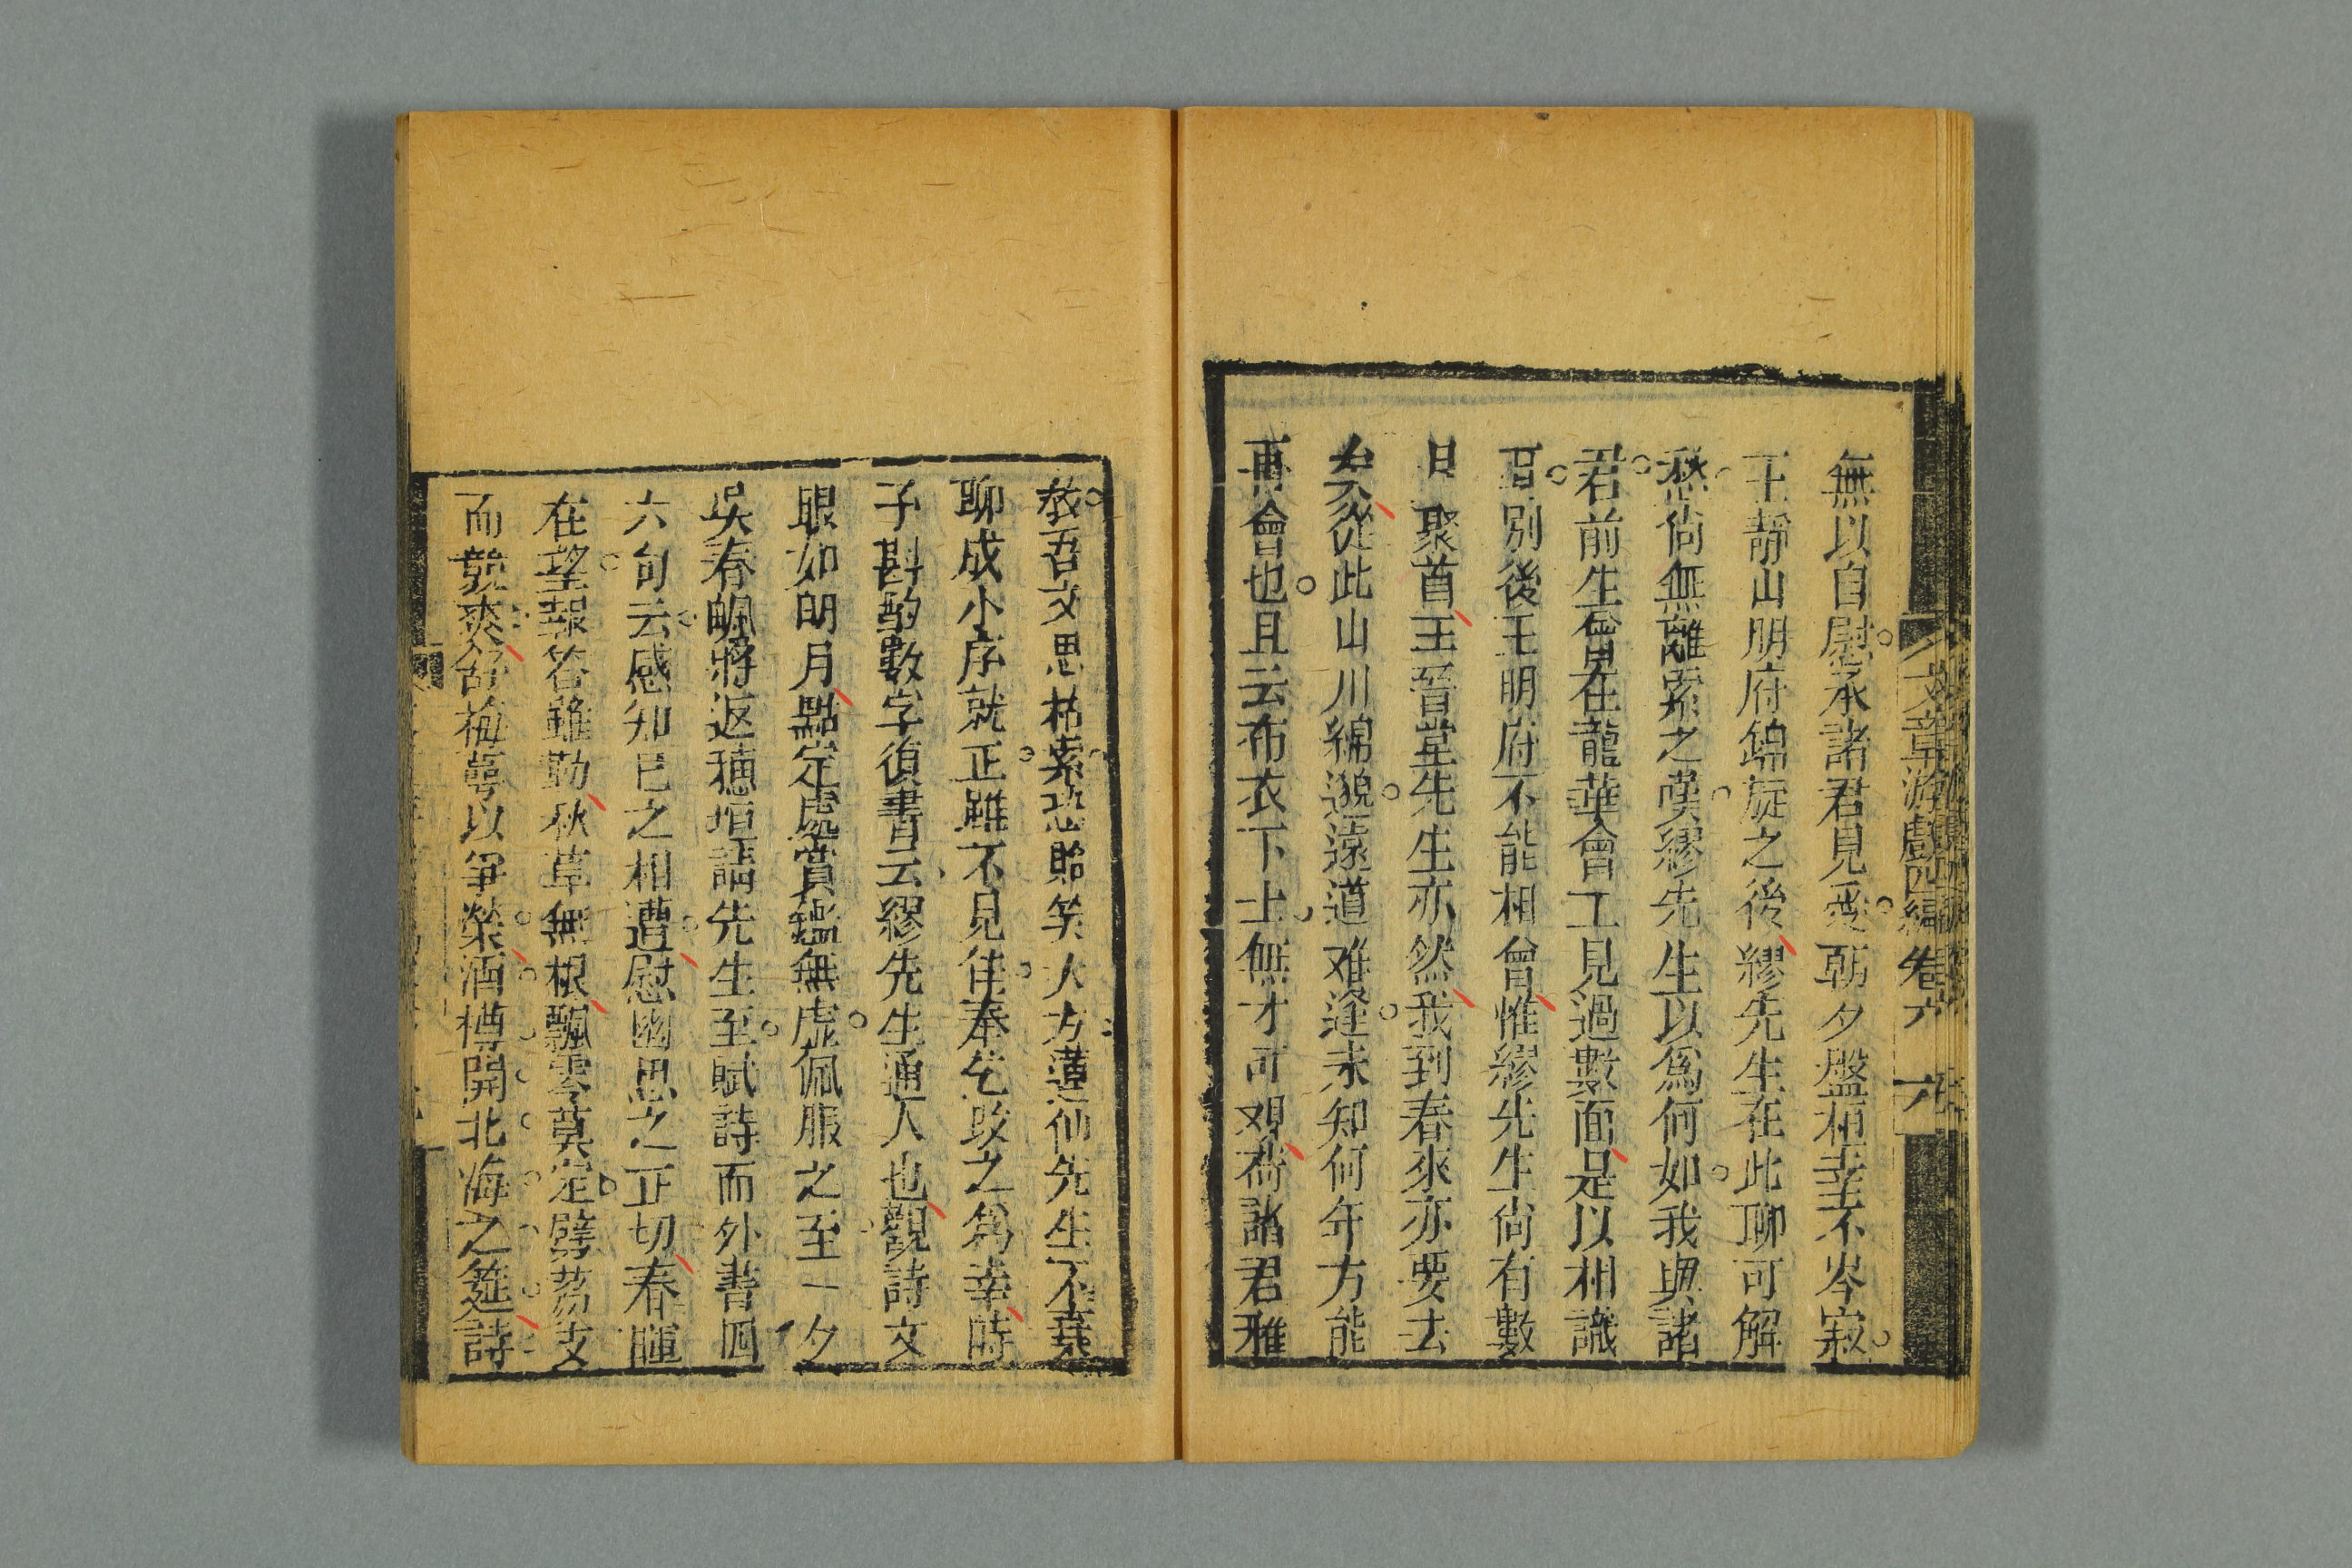 文章游戲四編 卷六
無以自慰承諸君見愛朝夕盤桓幸不岑寂
王靜山明府錦旋之後繆先生在此聊可解
愁尙無離索之嘆繆先生以爲何如我與諸
君前生會在龍華會上見過數面是以相識
別後王明府不能相會惟繆先生尙有數
日聚首王晉堂先生亦然我到春來亦要去
矣從此山川綿邈遠道难逢未知何年方能
再會也且云布衣下士無才可观荷諸君雅
教吾文思枯索恐貽笑大方蓮仙先生不棄
聊成小序就正雖不見佳奉乞政之爲幸時
子斟酌數字復書云繆先生通人也觀詩文
眼如明月點定處賞鑑無虛佩服之至一夕
吳春帆將返穗垣請先生至賦詩而外書四
六句云感知已之相遭慰幽思之正切春暉
在望報答雖勤秋草無根飄零莫定劈荔支
而競爽留梅萼以爭榮酒樽開北海之筵詩